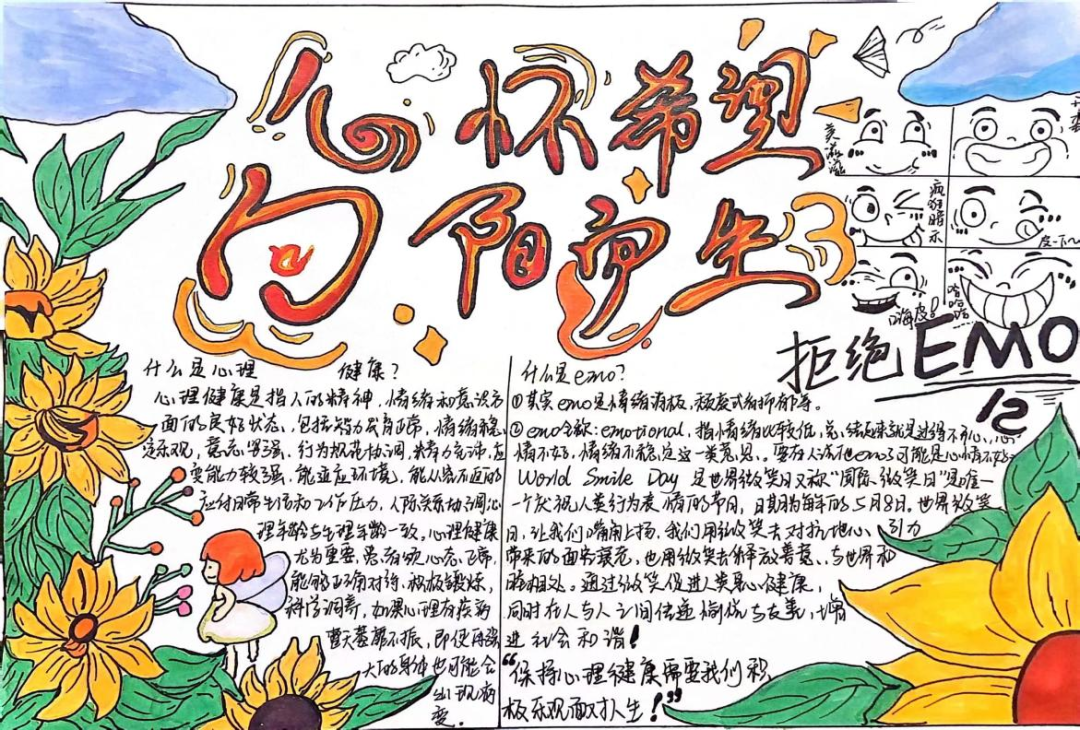 心怀希望
向阳而生
疯狂暗示
嗨皮!
哈哈哈
拒绝EMO
12
什么是心理 健康?
心理健康是指人的精神,情绪和意识方
面的良好状态,包括智力发育正常,情绪稳
定乐观,意志坚强,行为规范协调,精力充沛,应
变能力较强,能适应环境,能从容不迫的
应付日常生活和工作压力,人际关系协调,心
理年龄与生理年龄一致,心理健康
尤为重要,患者须心态正常,
能够正确对待,积极锻炼,
科学调养,如果心理有疾病
整天萎靡不振,即使再强
大的身体也可能会
出现病
变.
什么是emo?
①其实emo是情绪消极,颓废式的抑郁等。
②emo全称:emotional,指情绪比较低,总结起来就是过得不开心,心
情不好,情绪不稳定这一类意思。
World Smile Day 是世界微笑日又称"国际微笑日"是唯一
一个庆祝人类行为表情的节日,日期为每年的5月8日。世界微笑
日,让我们嘴角上扬,我们用微笑去对抗地心引力
带来的面容衰老,也用微笑去释放善意、与世界和
睦相处。通过微笑促进人类身心健康,
同时在人与人之间传递愉悦与友善,增
进社会和谐!
"保持心理健康需要我们积
极乐观面对人生!"